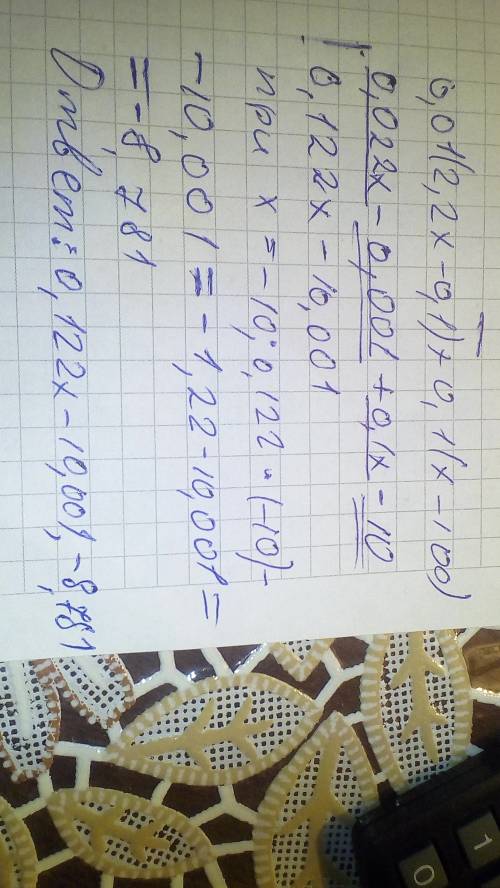 0,01(2,2x-0,1)+0,1(x-100)
0,022x-0,001+0,1x-10
0,122x-10,001
при x=-10: 0,122·(-10)-
-10,001=-1,22-10,001=
=-8,781
Ответ: 0,122x-10,001, -8,781
1
0